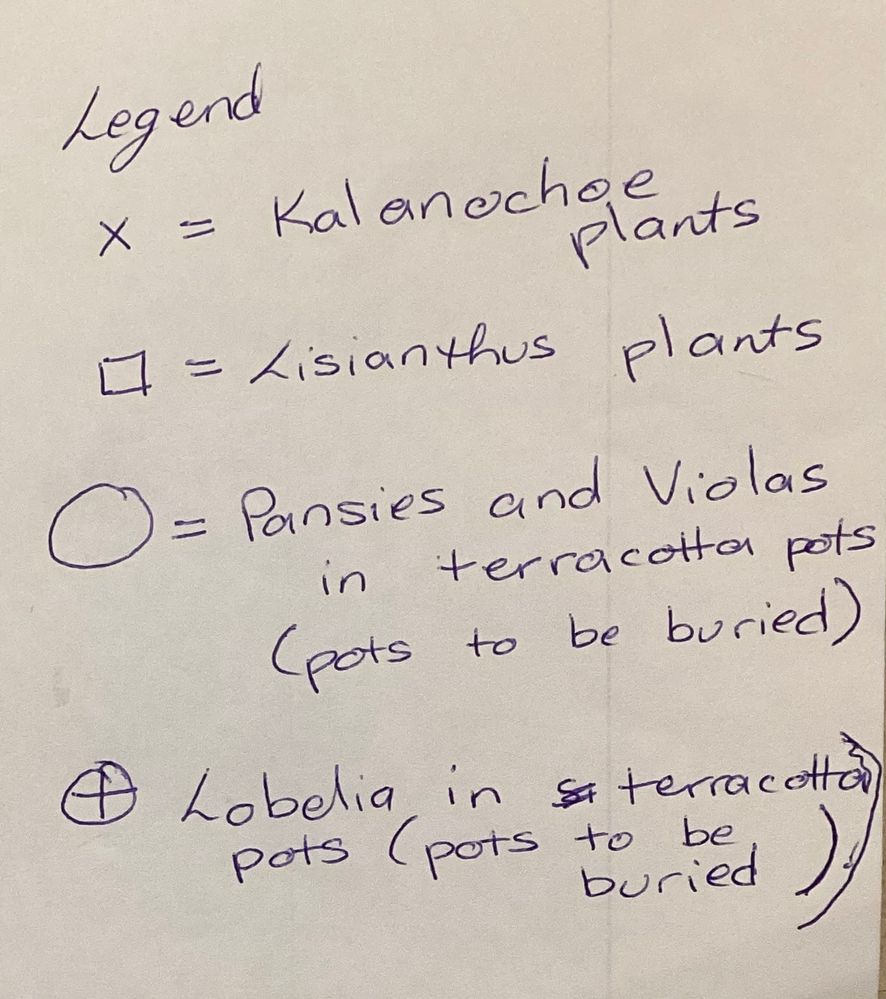 Legend
x = Kalanochoe
plants
□ = Lisianthus plants
○ = Pansies and Violas
in terracotta pots
(pots to be buried)
⊕ Lobelia in terracotta
pots (pots to be
buried)